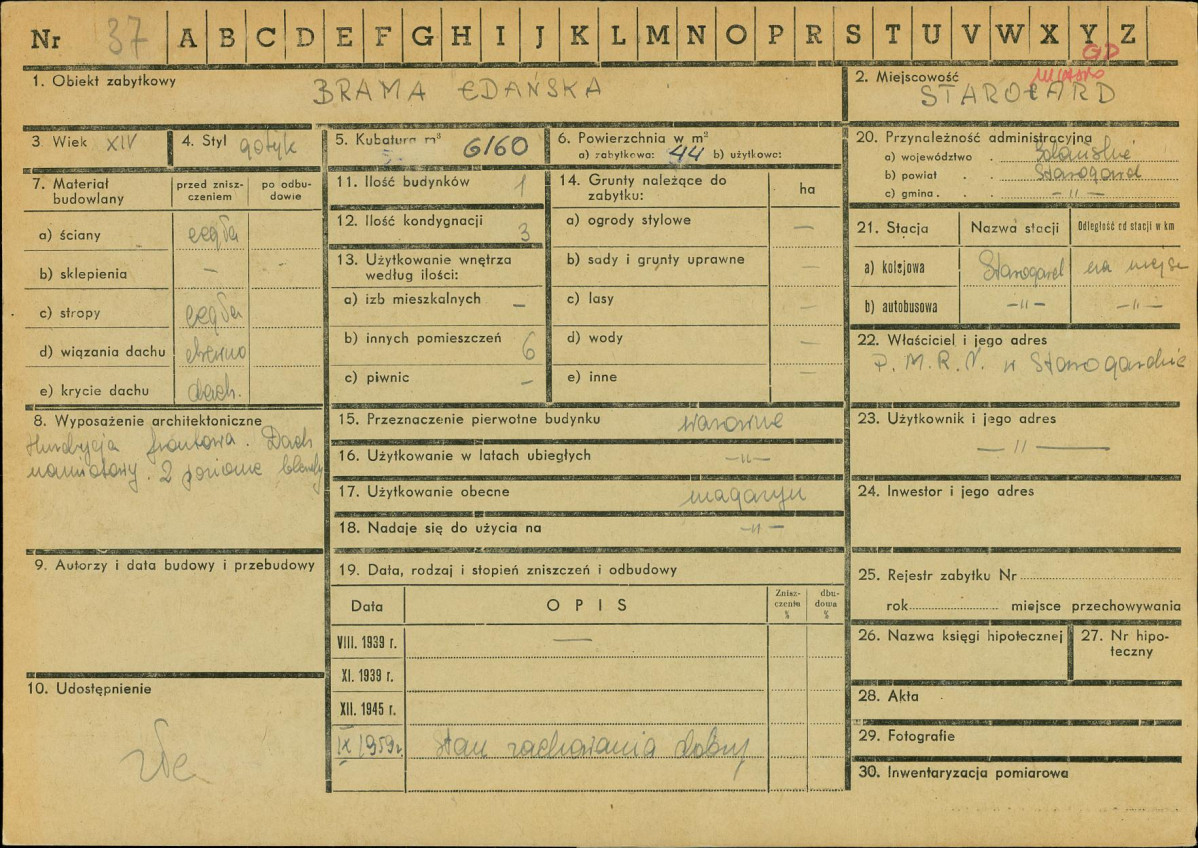 Nr 37 A B C D E F G H I J K L M N O P R S T U V W X Y Z
GD
1. Obiekt zabytkowy BRAMA GDAŃSKA
2. Miejscowość miasto
STAROGARD
3 Wiek XIV
4. Styl gotyk
5. Kubatura m³ 6160
6. Powierzchnia w m²
a) zabytkowa: 44 b) użytkowa:
7. Materiał budowlany
przed zniszczeniem
po odbudowie
a) ściany cegła
b) sklepienia – -
c) stropy cegła
d) wiązania dachu drewno
e) krycie dachu dach.
8. Wyposażenie architektoniczne
Hurdycja frontowa. Dach
namiotowy. 2 poziome blendy
9. Autorzy i data budowy i przebudowy
10. Udostępnienie
11. Ilość budynków 1
12. Ilość kondygnacji 3
13. Użytkowanie wnętrza
według ilości:
a) izb mieszkalnych –
b) innych pomieszczeń 6
c) piwnic –
14. Grunty należące do
zabytku:
ha
a) ogrody stylowe –
b) sady i grunty uprawne –
c) lasy –
d) wody –
e) inne
15. Przeznaczenie pierwotne budynku warowne
16. Użytkowanie w latach ubiegłych –"–
17. Użytkowanie obecne magazyn
18. Nadaje się do użycia na –"–
19. Data, rodzaj i stopień zniszczeń i odbudowy
Data OPIS Znisz-
czenia
% dbu-
dowa
%
VIII. 1939 r. —
XI. 1939 r.
XII. 1945 r.
IX 1959r. Stan zachowania dobry
20. Przynależność administracyjna
a) województwo . Gdańskie
b) powiat . . Starogard
c) gmina . . –"–
21. Stacja Nazwa stacji Odległość od stacji w km
a) kolejowa Starogard na miejscu
b) autobusowa –"– –"–
22. Właściciel i jego adres
P.M.R.N. w Starogardzie
23. Użytkownik i jego adres
– " —
24. Inwestor i jego adres
25. Rejestr zabytku Nr
rok miejsce przechowywania
26. Nazwa księgi hipotecznej
27. Nr hipo-
teczny
28. Akta
29. Fotografie
30. Inwentaryzacja pomiarowa